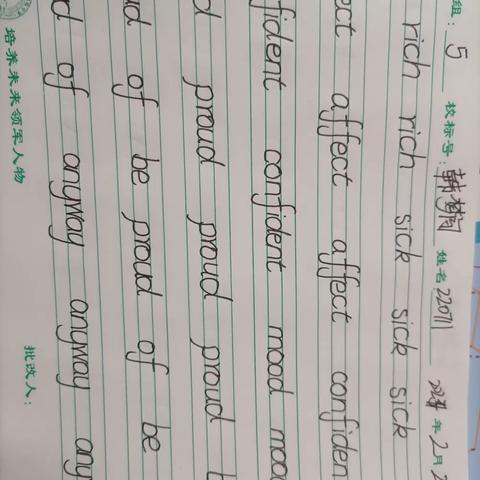 组: 5 校标号: 姓名 220711 年 2 月 2
rich rich sick sick sick
ect affect affect confiden
fident confident mood mood
d proud proud proud
ud of be proud of be
d of anyway anyway any
培养未来领军人物 批改人: